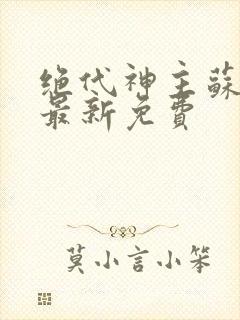 绝代神主蘇
最新免費
莫小言小笨